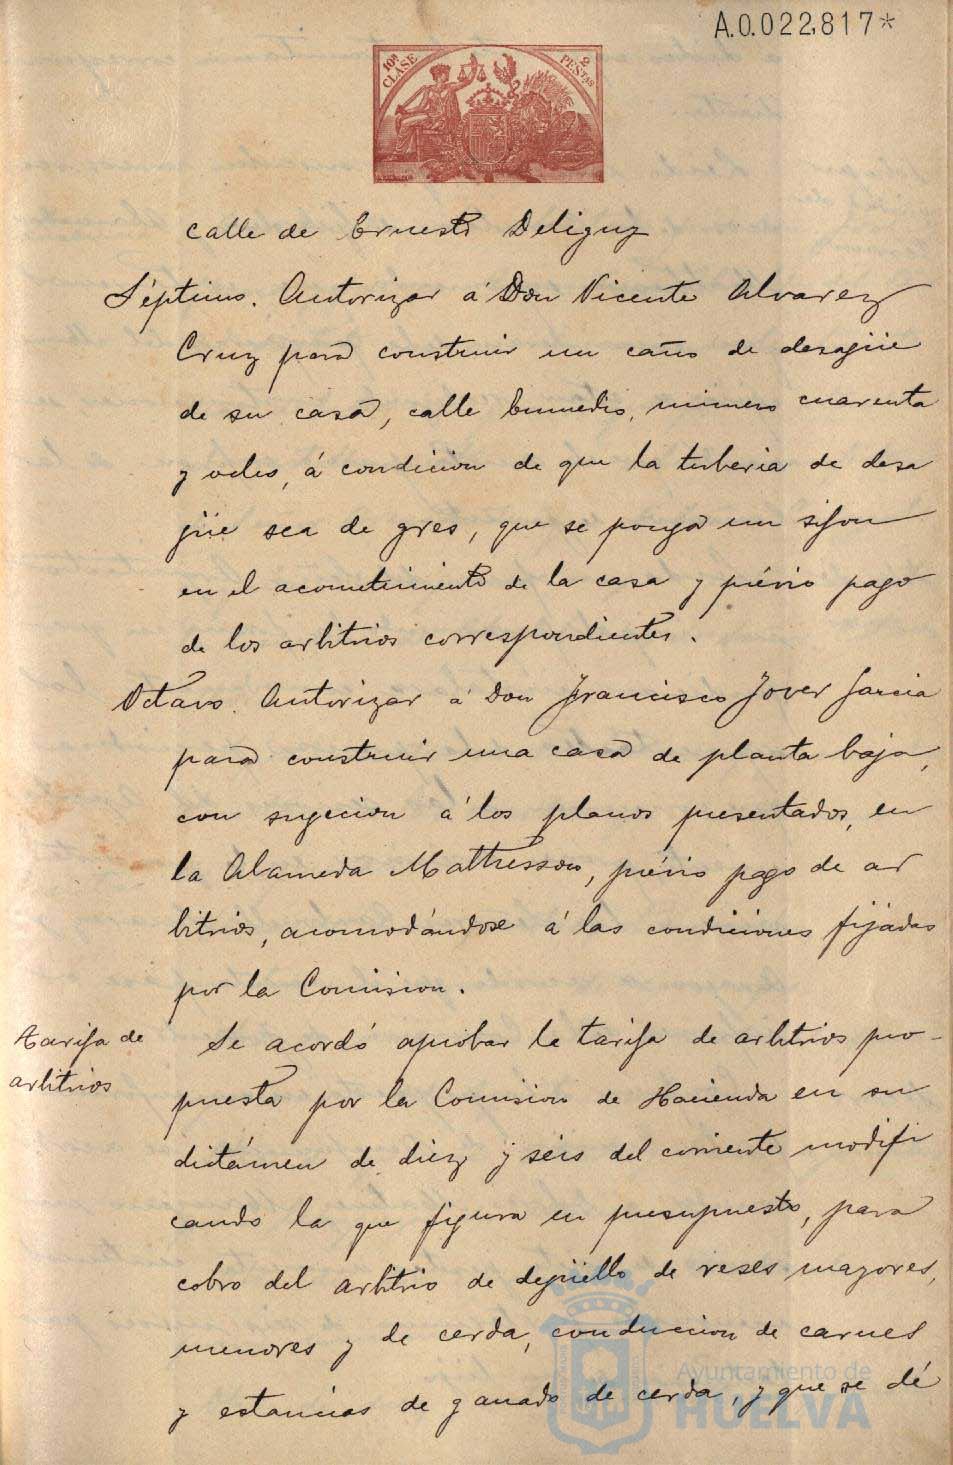 A.0.022,817*
10ª CLASE
2 PESTAS
calle de Ernesto Deligny
Séptimo. Autorizar á Don Vicente Alvarez
Cruz para construir un caño de desagüe
de su casa, calle Enmedio, número cuarenta
y ocho, á condicion de que la tuberia de desa
güe sea de gres, que se ponga un sifon
en el acometimiento de la casa y prévio pago
de los arbitrios correspondientes.
Octavo. Autorizar á Don Francisco Jover Garcia
para construir una casa de planta baja,
con sugecion á los planos presentados, en
la Alameda Mathesson, prévio pago de ar
bitrios, acomodándose á las condiciones fijadas
por la Comision.
Tarifa de
arbitrios
Se acordó aprobar la tarifa de arbitrios pro-
puesta por la Comision de Hacienda en su
dictámen de diez y seis del corriente modifi
cando la que figura en presupuesto, para
cobro del arbitrio de degüello de reses mayores,
menores y de cerda, conduccion de carnes
y estancias de ganado de cerda, y que se dé
Ayuntamiento de
HUELVA